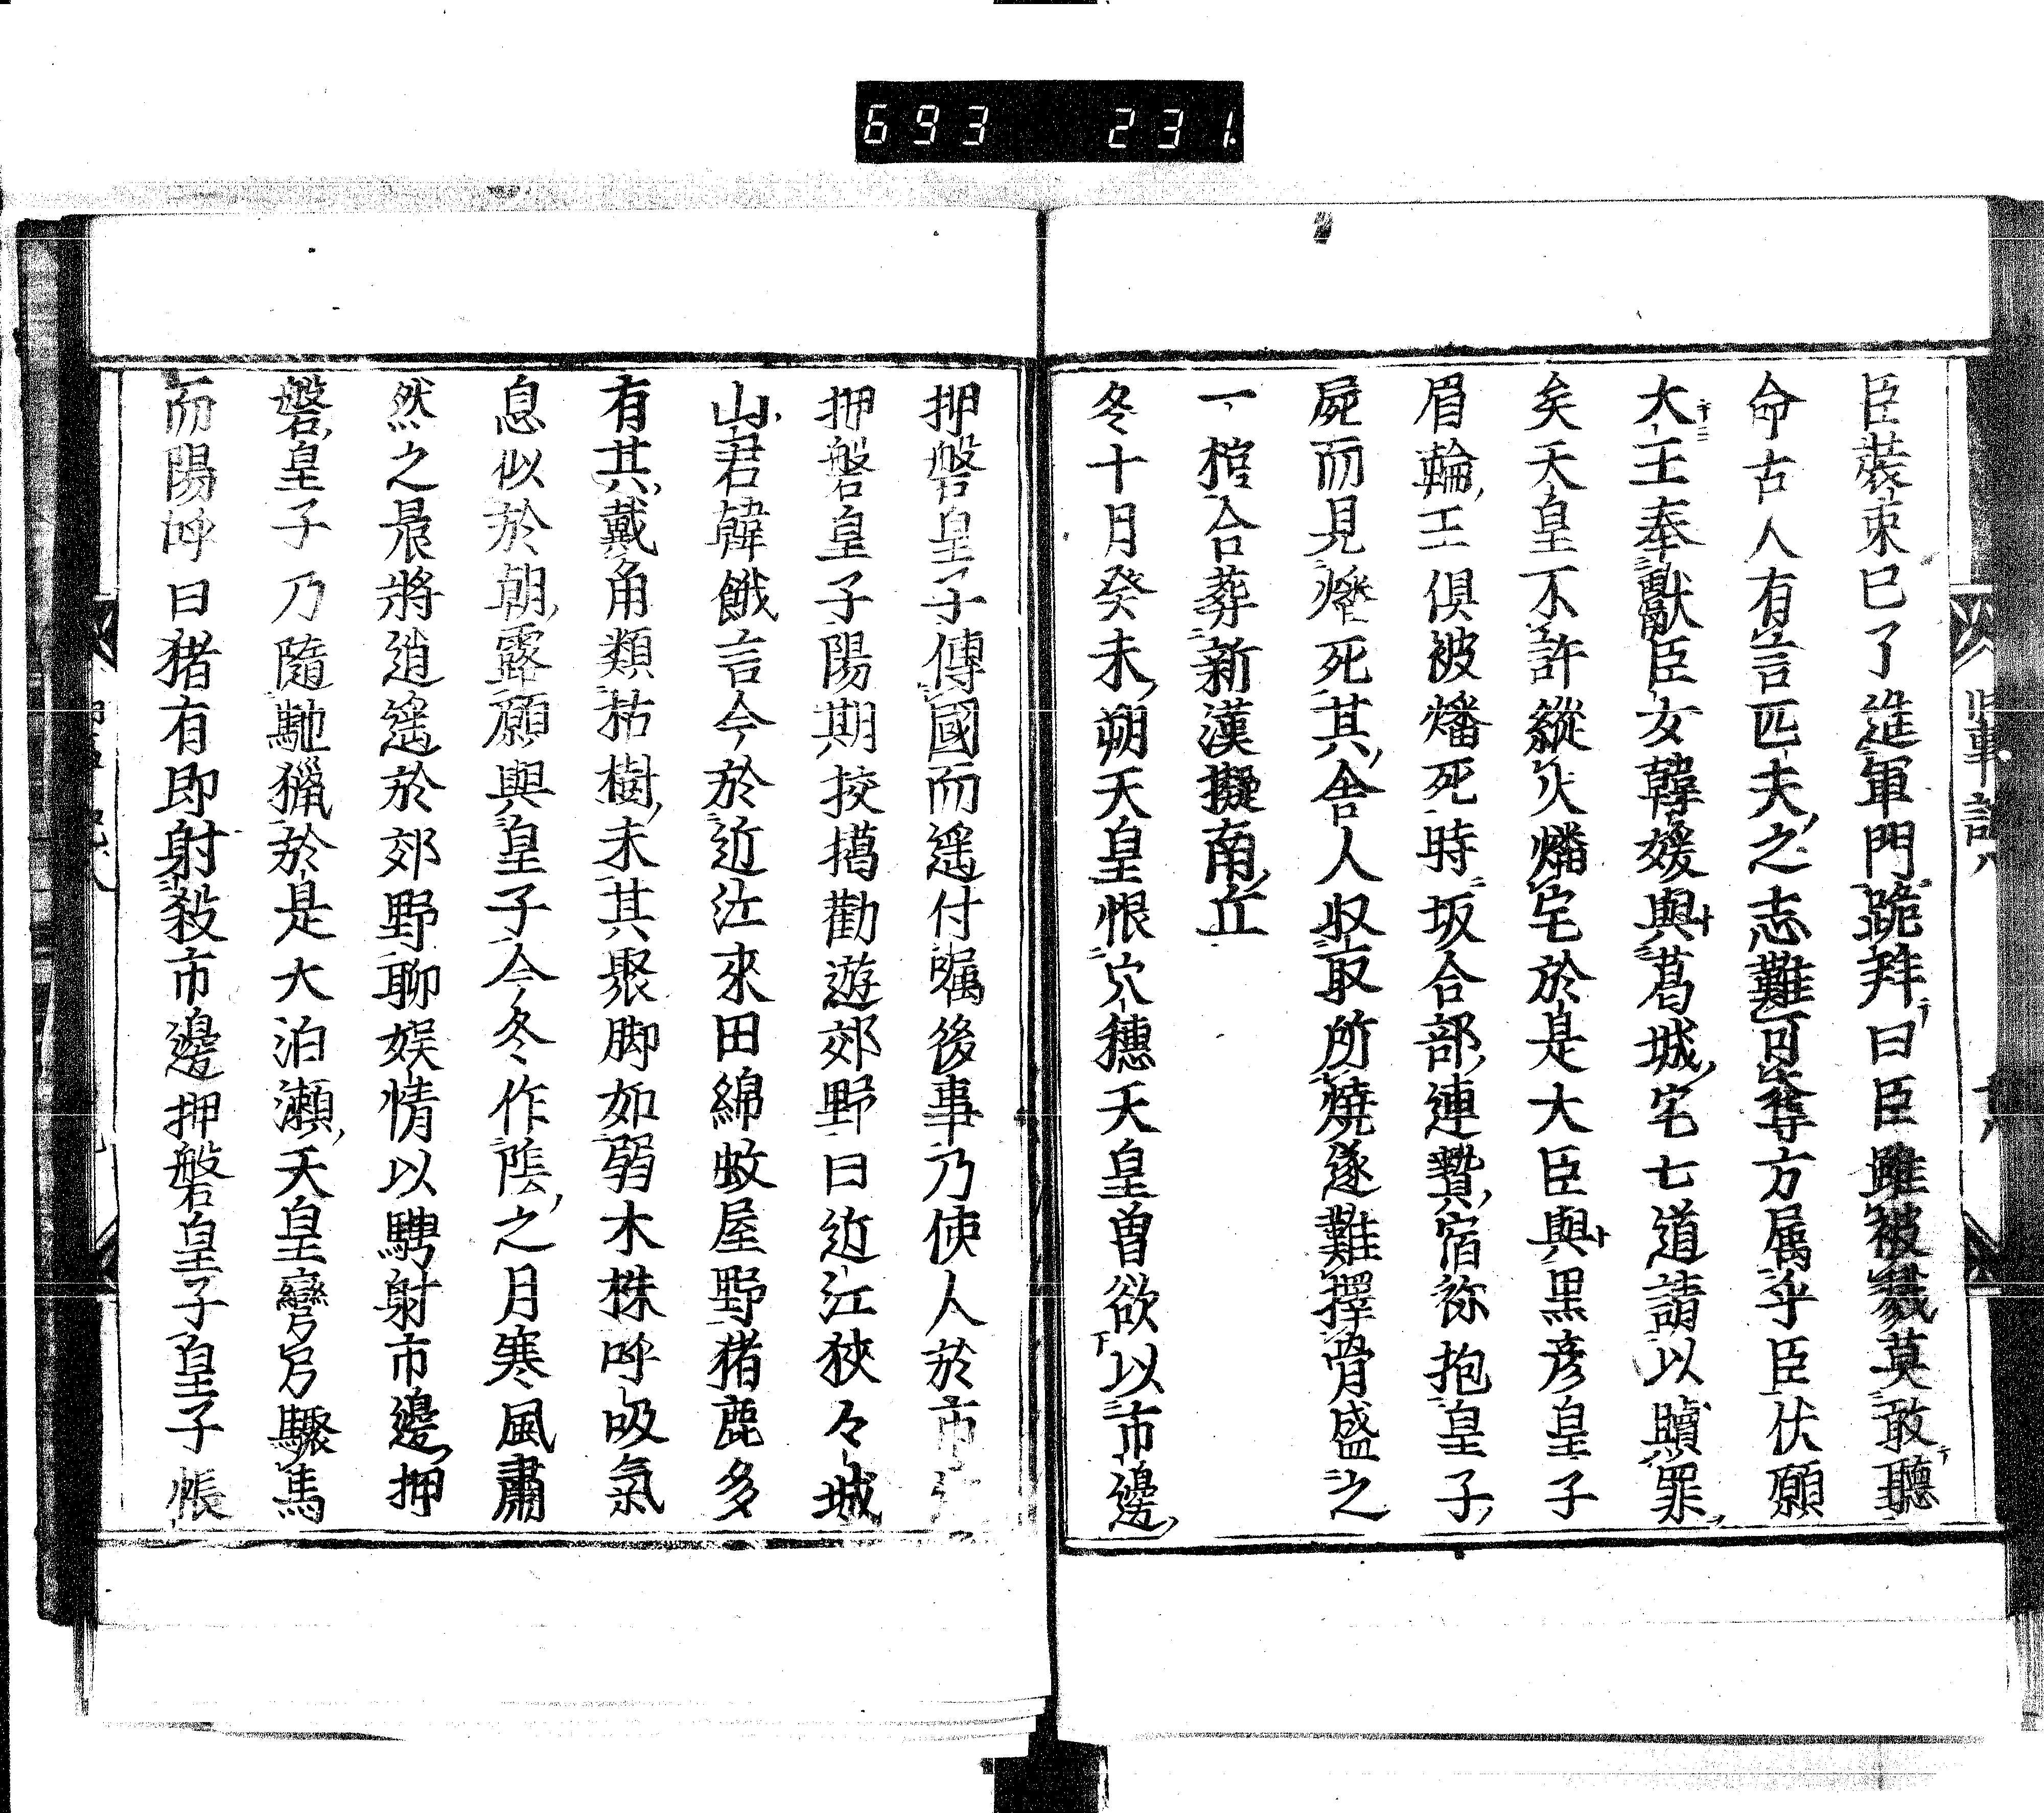 693 231
臣裝束已了進軍門跪拜曰臣雖被戮莫敢聽
命古人有言匹夫之志難可奪方属乎臣伏願
大王奉獻臣女韓媛與葛城宅七道請以贖罪
矣天皇不許縱火燔宅於是大臣與黒彦皇子
眉輪王倶被燔死時坂合部連贄宿祢抱皇子
屍而見燔死其舎人収取所焼遂難擇骨盛之
一棺合葬新漢擬南丘
冬十月癸未朔天皇恨穴穗天皇曽欲以市邊
押磐皇子傳國而遥付嘱後事乃使人於市
押磐皇子陽期挍獦勸遊郊野曰近江狹々城
山君韓帒言今於近江來田綿蚊屋野猪鹿多
有其戴角類枯樹未其聚脚如弱木株呼吸氣
息似於朝露願與皇子今冬作陰之月寒風肅
然之晨將逍遥於郊野聊娯情以騁射市邊押
磐皇子乃隨馳獵於是大泊瀬天皇彎弓驟馬
而陽呼曰猪有即射殺市邊押磐皇子皇子帳